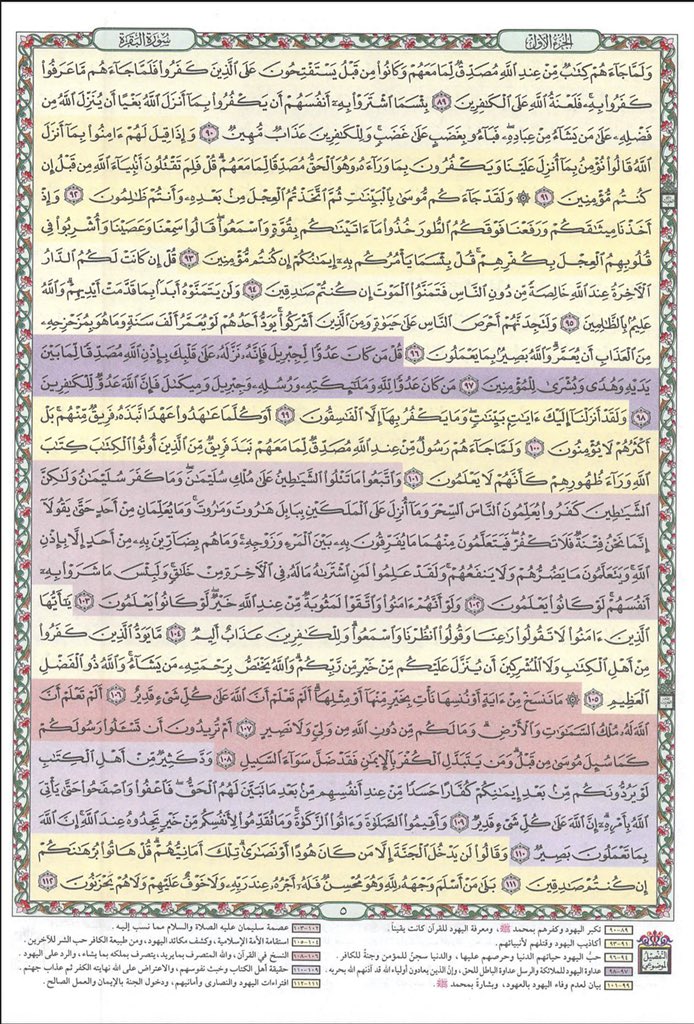 الجزء الأول
سورة البقرة
وَلَمَّا جَاءَهُمْ كِتَابٌ مِّنْ عِندِ اللَّهِ مُصَدِّقٌ لِّمَا مَعَهُمْ وَكَانُوا مِن قَبْلُ يَسْتَفْتِحُونَ عَلَى الَّذِينَ كَفَرُوا فَلَمَّا جَاءَهُم مَّا عَرَفُوا
كَفَرُوا بِهِ فَلَعْنَةُ اللَّهِ عَلَى الْكَافِرِينَ ٨٩ بِئْسَمَا اشْتَرَوْا بِهِ أَنفُسَهُمْ أَن يَكْفُرُوا بِمَا أَنزَلَ اللَّهُ بَغْيًا أَن يُنَزِّلَ اللَّهُ مِن
فَضْلِهِ عَلَى مَن يَشَاءُ مِنْ عِبَادِهِ فَبَاءُو بِغَضَبٍ عَلَى غَضَبٍ وَلِلْكَافِرِينَ عَذَابٌ مُّهِينٌ ٩٠ وَإِذَا قِيلَ لَهُمْ ءَامِنُوا بِمَا أَنزَلَ
اللَّهُ قَالُوا نُؤْمِنُ بِمَا أُنزِلَ عَلَيْنَا وَيَكْفُرُونَ بِمَا وَرَاءَهُ وَهُوَ الْحَقُّ مُصَدِّقًا لِّمَا مَعَهُمْ قُلْ فَلِمَ تَقْتُلُونَ أَنبِيَاءَ اللَّهِ مِن قَبْلُ إِن
كُنتُم مُّؤْمِنِينَ ٩١ ۞ وَلَقَدْ جَاءَكُم مُّوسَى بِالْبَيِّنَاتِ ثُمَّ اتَّخَذْتُمُ الْعِجْلَ مِن بَعْدِهِ وَأَنتُمْ ظَالِمُونَ ٩٢ وَإِذْ
أَخَذْنَا مِيثَاقَكُمْ وَرَفَعْنَا فَوْقَكُمُ الطُّورَ خُذُوا مَا ءَاتَيْنَاكُم بِقُوَّةٍ وَاسْمَعُوا قَالُوا سَمِعْنَا وَعَصَيْنَا وَأُشْرِبُوا فِي
قُلُوبِهِمُ الْعِجْلَ بِكُفْرِهِمْ قُلْ بِئْسَمَا يَأْمُرُكُم بِهِ إِيمَانُكُمْ إِن كُنتُم مُّؤْمِنِينَ ٩٣ قُلْ إِن كَانَتْ لَكُمُ الدَّارُ
الْآخِرَةُ عِندَ اللَّهِ خَالِصَةً مِّن دُونِ النَّاسِ فَتَمَنَّوُا الْمَوْتَ إِن كُنتُمْ صَادِقِينَ ٩٤ وَلَن يَتَمَنَّوْهُ أَبَدًا بِمَا قَدَّمَتْ أَيْدِيهِمْ وَاللَّهُ
عَلِيمٌ بِالظَّالِمِينَ ٩٥ وَلَتَجِدَنَّهُمْ أَحْرَصَ النَّاسِ عَلَى حَيَوٰةٍ وَمِنَ الَّذِينَ أَشْرَكُوا يَوَدُّ أَحَدُهُمْ لَوْ يُعَمَّرُ أَلْفَ سَنَةٍ وَمَا هُوَ بِمُزَحْزِحِهِ
مِنَ الْعَذَابِ أَن يُعَمَّرَ وَاللَّهُ بَصِيرٌ بِمَا يَعْمَلُونَ ٩٦ قُلْ مَن كَانَ عَدُوًّا لِّجِبْرِيلَ فَإِنَّهُ نَزَّلَهُ عَلَى قَلْبِكَ بِإِذْنِ اللَّهِ مُصَدِّقًا لِّمَا بَيْنَ
يَدَيْهِ وَهُدًى وَبُشْرَى لِلْمُؤْمِنِينَ ٩٧ مَن كَانَ عَدُوًّا لِّلَّهِ وَمَلَائِكَتِهِ وَرُسُلِهِ وَجِبْرِيلَ وَمِيكَالَ فَإِنَّ اللَّهَ عَدُوٌّ لِّلْكَافِرِينَ
٩٨ وَلَقَدْ أَنزَلْنَا إِلَيْكَ ءَايَاتٍ بَيِّنَاتٍ وَمَا يَكْفُرُ بِهَا إِلَّا الْفَاسِقُونَ ٩٩ أَوَكُلَّمَا عَاهَدُوا عَهْدًا نَّبَذَهُ فَرِيقٌ مِّنْهُم بَلْ
أَكْثَرُهُمْ لَا يُؤْمِنُونَ ١٠٠ وَلَمَّا جَاءَهُمْ رَسُولٌ مِّنْ عِندِ اللَّهِ مُصَدِّقٌ لِّمَا مَعَهُمْ نَبَذَ فَرِيقٌ مِّنَ الَّذِينَ أُوتُوا الْكِتَابَ كِتَابَ
اللَّهِ وَرَاءَ ظُهُورِهِمْ كَأَنَّهُمْ لَا يَعْلَمُونَ ١٠١ وَاتَّبَعُوا مَا تَتْلُوا الشَّيَاطِينُ عَلَى مُلْكِ سُلَيْمَانَ وَمَا كَفَرَ سُلَيْمَانُ وَلَكِنَّ
الشَّيَاطِينَ كَفَرُوا يُعَلِّمُونَ النَّاسَ السِّحْرَ وَمَا أُنزِلَ عَلَى الْمَلَكَيْنِ بِبَابِلَ هَارُوتَ وَمَارُوتَ وَمَا يُعَلِّمَانِ مِنْ أَحَدٍ حَتَّى يَقُولَا
إِنَّمَا نَحْنُ فِتْنَةٌ فَلَا تَكْفُرْ فَيَتَعَلَّمُونَ مِنْهُمَا مَا يُفَرِّقُونَ بِهِ بَيْنَ الْمَرْءِ وَزَوْجِهِ وَمَا هُم بِضَارِّينَ بِهِ مِنْ أَحَدٍ إِلَّا بِإِذْنِ
اللَّهِ وَيَتَعَلَّمُونَ مَا يَضُرُّهُمْ وَلَا يَنفَعُهُمْ وَلَقَدْ عَلِمُوا لَمَنِ اشْتَرَاهُ مَا لَهُ فِي الْآخِرَةِ مِنْ خَلَاقٍ وَلَبِئْسَ مَا شَرَوْا بِهِ
أَنفُسَهُمْ لَوْ كَانُوا يَعْلَمُونَ ١٠٢ وَلَوْ أَنَّهُمْ ءَامَنُوا وَاتَّقَوْا لَمَثُوبَةٌ مِّنْ عِندِ اللَّهِ خَيْرٌ لَّوْ كَانُوا يَعْلَمُونَ ١٠٣ يَا أَيُّهَا
الَّذِينَ ءَامَنُوا لَا تَقُولُوا رَاعِنَا وَقُولُوا انظُرْنَا وَاسْمَعُوا وَلِلْكَافِرِينَ عَذَابٌ أَلِيمٌ ١٠٤ مَّا يَوَدُّ الَّذِينَ كَفَرُوا
مِنْ أَهْلِ الْكِتَابِ وَلَا الْمُشْرِكِينَ أَن يُنَزَّلَ عَلَيْكُم مِّنْ خَيْرٍ مِّن رَّبِّكُمْ وَاللَّهُ يَخْتَصُّ بِرَحْمَتِهِ مَن يَشَاءُ وَاللَّهُ ذُو الْفَضْلِ
الْعَظِيمِ ١٠٥ ۞ مَا نَنسَخْ مِنْ ءَايَةٍ أَوْ نُنسِهَا نَأْتِ بِخَيْرٍ مِّنْهَا أَوْ مِثْلِهَا أَلَمْ تَعْلَمْ أَنَّ اللَّهَ عَلَى كُلِّ شَيْءٍ قَدِيرٌ ١٠٦ أَلَمْ تَعْلَمْ أَنَّ
اللَّهَ لَهُ مُلْكُ السَّمَاوَاتِ وَالْأَرْضِ وَمَا لَكُم مِّن دُونِ اللَّهِ مِن وَلِيٍّ وَلَا نَصِيرٍ ١٠٧ أَمْ تُرِيدُونَ أَن تَسْأَلُوا رَسُولَكُمْ
كَمَا سُئِلَ مُوسَى مِن قَبْلُ وَمَن يَتَبَدَّلِ الْكُفْرَ بِالْإِيمَانِ فَقَدْ ضَلَّ سَوَاءَ السَّبِيلِ ١٠٨ وَدَّ كَثِيرٌ مِّنْ أَهْلِ الْكِتَابِ
لَوْ يَرُدُّونَكُم مِّن بَعْدِ إِيمَانِكُمْ كُفَّارًا حَسَدًا مِّنْ عِندِ أَنفُسِهِم مِّن بَعْدِ مَا تَبَيَّنَ لَهُمُ الْحَقُّ فَاعْفُوا وَاصْفَحُوا حَتَّى يَأْتِيَ
اللَّهُ بِأَمْرِهِ إِنَّ اللَّهَ عَلَى كُلِّ شَيْءٍ قَدِيرٌ ١٠٩ وَأَقِيمُوا الصَّلَوٰةَ وَءَاتُوا الزَّكَوٰةَ وَمَا تُقَدِّمُوا لِأَنفُسِكُم مِّنْ خَيْرٍ تَجِدُوهُ عِندَ اللَّهِ إِنَّ اللَّهَ
بِمَا تَعْمَلُونَ بَصِيرٌ ١١٠ وَقَالُوا لَن يَدْخُلَ الْجَنَّةَ إِلَّا مَن كَانَ هُودًا أَوْ نَصَارَى تِلْكَ أَمَانِيُّهُمْ قُلْ هَاتُوا بُرْهَانَكُمْ
إِن كُنتُمْ صَادِقِينَ ١١١ بَلَى مَنْ أَسْلَمَ وَجْهَهُ لِلَّهِ وَهُوَ مُحْسِنٌ فَلَهُ أَجْرُهُ عِندَ رَبِّهِ وَلَا خَوْفٌ عَلَيْهِمْ وَلَا هُمْ يَحْزَنُونَ ١١٢
٥
التفصيل الموضوعي
٨٩-٩٠ تكبر اليهود وكفرهم بمحمد ﷺ، ومعرفة اليهود للقرآن كانت يقيناً.
٩١-٩٣ أكاذيب اليهود وقتلهم لأنبيائهم.
٩٤-٩٦ حبُّ اليهود حياتهم الدنيا وحرصهم عليها، والدنيا سجنٌ للمؤمن وجنةٌ للكافر.
٩٧-٩٨ عداوة اليهود للملائكة والرسل عداوة الباطل للحق، وإنّ الذين يعادون أولياء الله قد آذنهم الله بحربه.
٩٩-١٠١ بيان لعدم وفاء اليهود بالعهود، وبشارةٌ بمحمد ﷺ.
١٠٢-١٠٣ عصمة سليمان عليه الصلاة والسلام مما نسب إليه.
١٠٤-١٠٥ استقامة الأمة الإسلامية، وكشف مكائد اليهود، ومن طبيعة الكافر حب الشر للآخرين.
١٠٦-١٠٨ النسخ في القرآن، والله المتصرف بمايريد، يتصرف بملكه بما يشاء، والرد على اليهود.
١٠٩-١١٠ حقيقة أهل الكتاب وخبث نفوسهم، والاعتراض على الله نهايته الكفر ثم عذاب جهنم.
١١١-١١٢ افتراءات اليهود والنصارى وأمانيهم، ودخول الجنة بالإيمان والعمل الصالح.